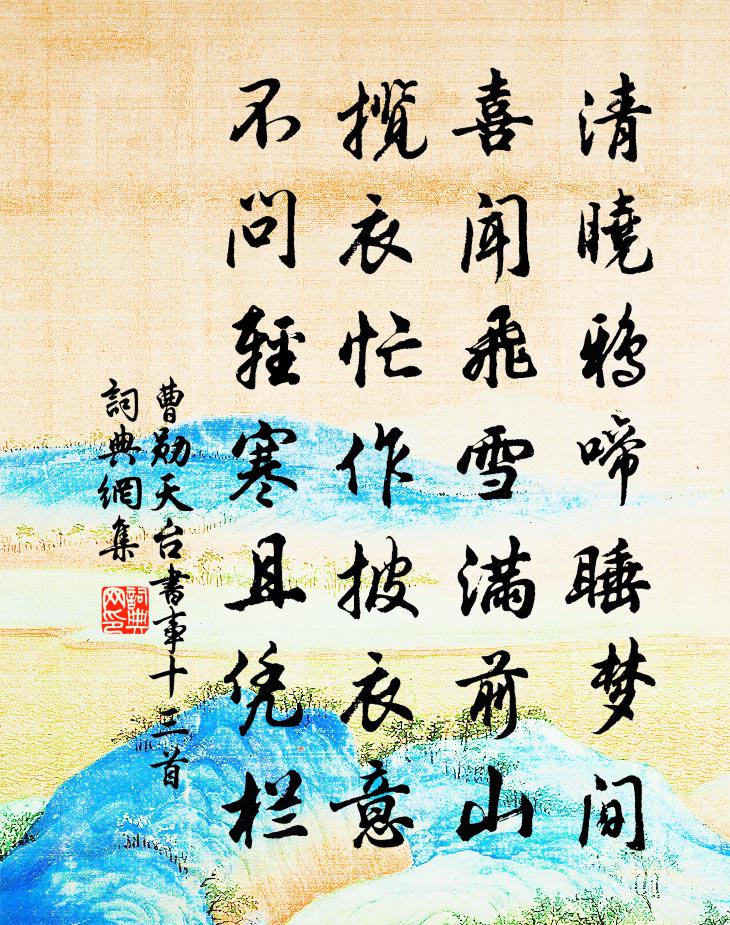 清曉鴉啼睡梦间
喜闻飛雪满前山
攬衣忙作披衣意
不问輕寒且凭栏
曹勋天台書事十三首
詞典網集
詞典
网印